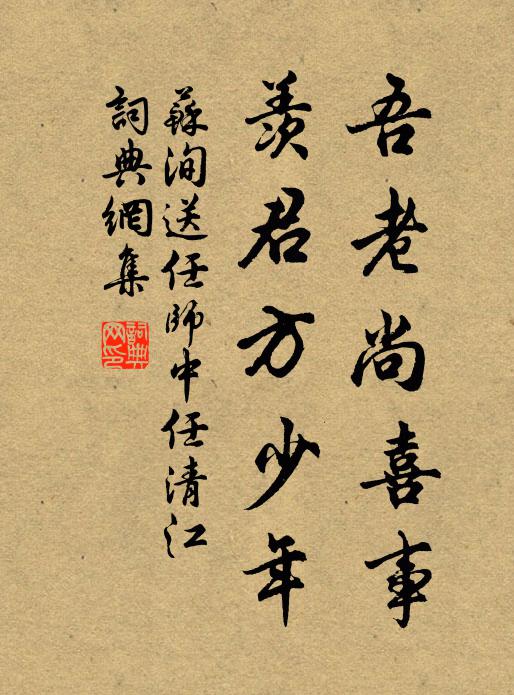 吾老尚喜事
羨君方少年
蘇洵送任師中任清江
詞典網集
詞典網印